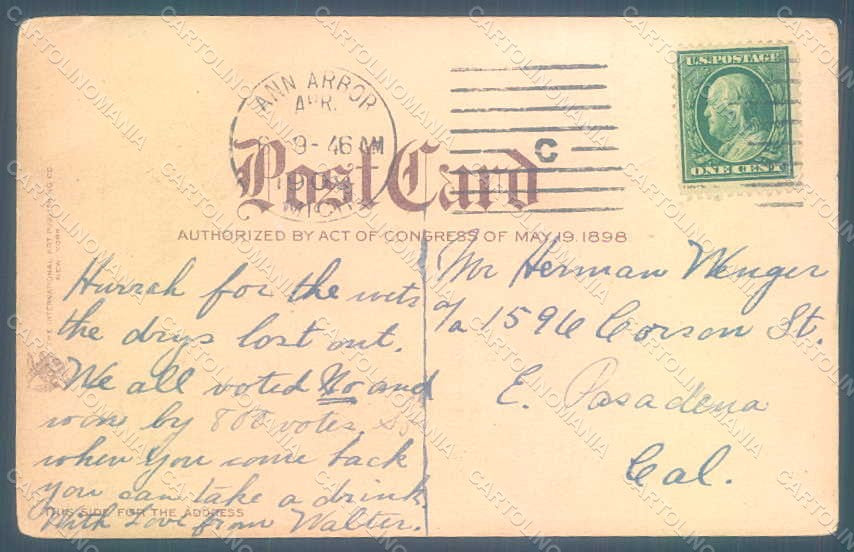 U.S. POSTAGE
ONE CENT
ANN ARBOR
APR.
9-
AM
MICH
C
Post Card
AUTHORIZED BY ACT OF CONGRESS OF MAY 19, 1898
THE INTERNATIONAL ART PUBLISHING CO.
NEW YORK
Hurrah for the wets
the drys lost out.
We all voted No and
won by 800 votes. So
when you come back
you can take a drink.
With Love from Walter.
THIS SIDE FOR THE ADDRESS
Mr Herman Wenger
1596 Corson St.
E. Pasadena
Cal.
CARTOLINOMANIA